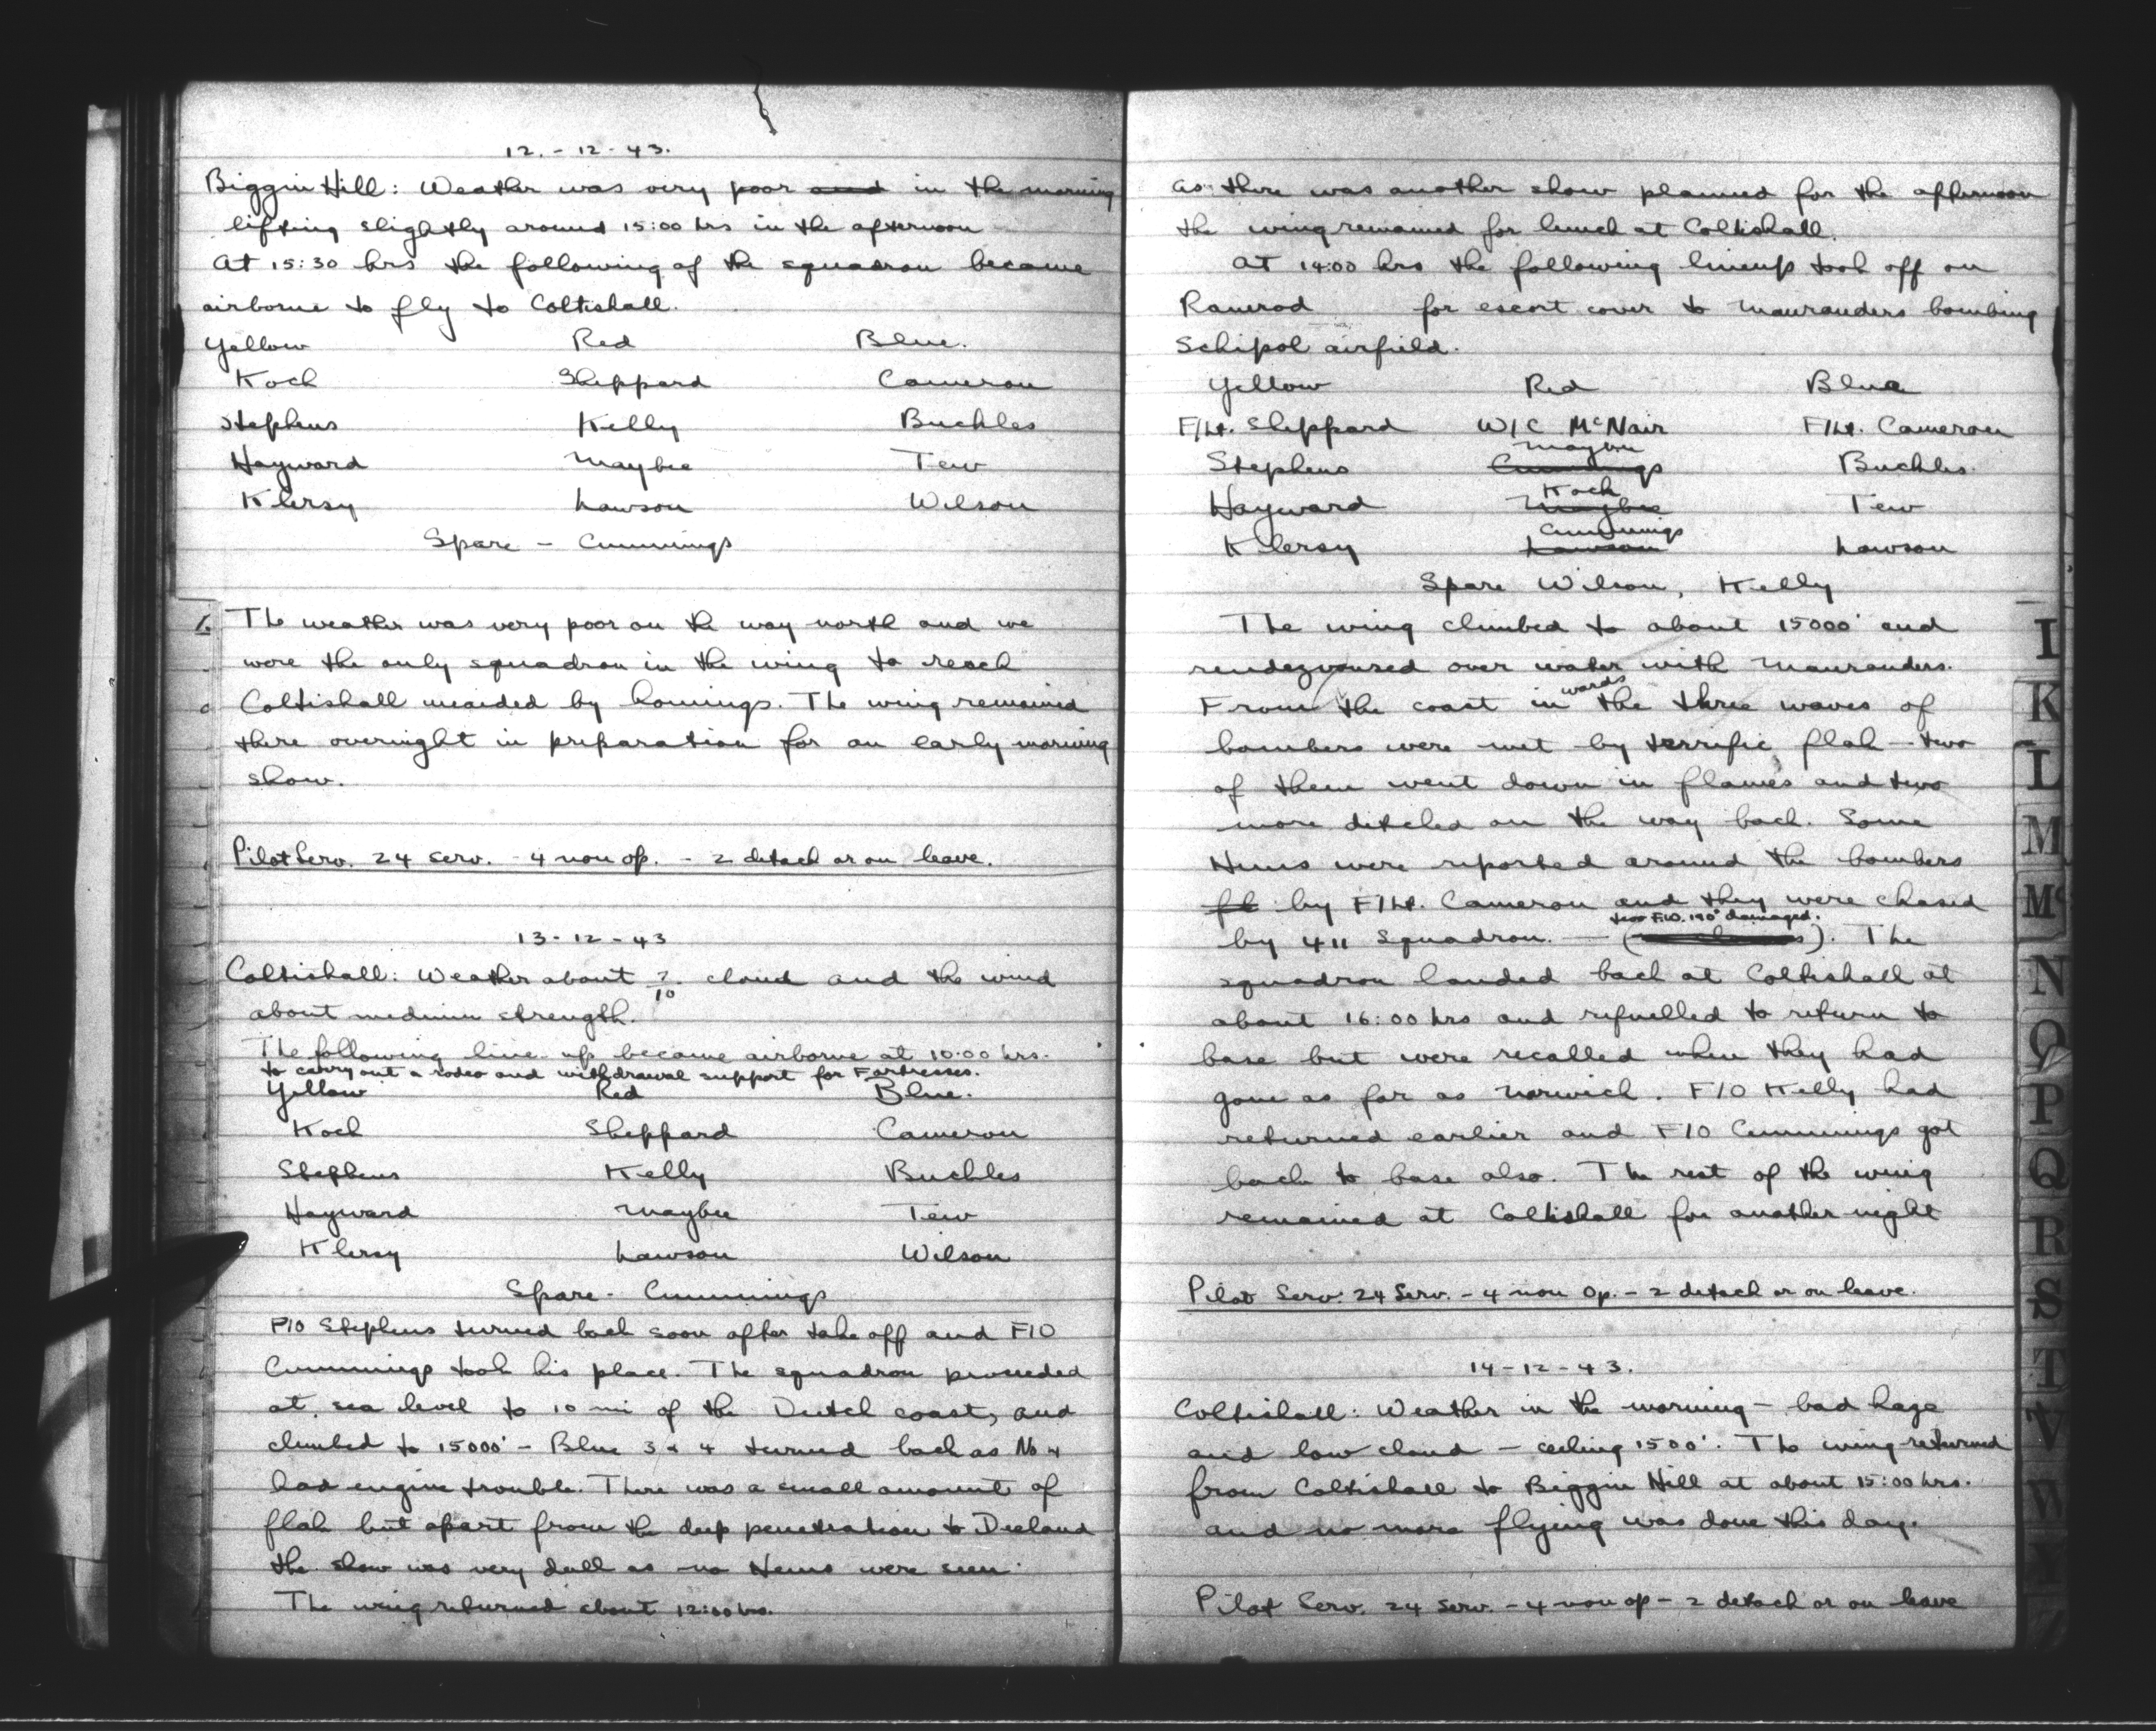 12.-12-43.
Biggin Hill: Weather was very poor and in the morning
lifting slightly around 15:00 hrs in the afternoon
At 15:30 hrs the following of the squadron became
airborne to fly to Coltishall.
Yellow Red Blue.
Koch Sheppard Cameron
Stephens Kelly Buckles
Hayward Maybee Tew
Klersy Lawson Wilson
Spare - Cummings
The weather was very poor on the way north and we
were the only squadron in the wing to reach
Coltishall unaided by homings. The wing remained
there overnight in preparation for an early morning
show.
Pilot Serv. 24 serv. - 4 non op. - 2 detach or on leave.
13-12-43
Coltishall: Weather about 7/10 cloud and the wind
about medium strength.
The following line-up became airborne at 10:00 hrs.
to carry out a rodeo and withdrawal support for Fortresses.
Yellow Red Blue.
Koch Sheppard Cameron
Stephens Kelly Buckles
Hayward Maybee Tew
Klersy Lawson Wilson
Spare - Cummings
P/O Stephens turned back soon after take off and F/O
Cummings took his place. The squadron proceeded
at sea level to 10 mi of the Dutch coast, and
climbed to 15000' - Blue 3 & 4 turned back as No 4
had engine trouble. There was a small amount of
flak but apart from the deep penetration to Deeland
the show was very dull as no Huns were seen.
The wing returned about 12:00 hrs.
As there was another show planned for the afternoon
the wing remained for lunch at Coltishall.
At 14:00 hrs the following lineup took off on
Ramrod for escort cover to Maurauders bombing
Schipol airfield.
Yellow Red Blue
F/Lt. Sheppard W/C McNair F/Lt. Cameron
Maybee
Stephens Cummings Buckles.
Koch
Hayward Maybee Tew
Cummings
Klersy Lawson Lawson
Spare Wilson, Kelly
The wing climbed to about 15000' and
rendezvoused over water with Maurauders.
From the coast inwards the three waves of
bombers were met by terrific flak - two
of them went down in flames and two
more ditched on the way back. Some
Huns were reported around the bombers
by F/Lt. Cameron and they were chased
two F.W. 190' damaged.
by 411 Squadron. - ( ). The
squadron landed back at Coltishall at
about 16:00 hrs and refuelled to return to
base but were recalled when they had
gone as far as Norwich. F/O Kelly had
returned earlier and F/O Cummings got
back to base also. The rest of the wing
remained at Coltishall for another night
Pilot Serv. 24 Serv. - 4 non Op. - 2 detach or on leave.
14-12-43.
Coltishall: Weather in the morning - bad haze
and low cloud - ceiling 1500'. The wing returned
from Coltishall to Biggin Hill at about 15:00 hrs.
and no more flying was done this day.
Pilot Serv. 24 Serv. - 4 non op - 2 detach or on leave
I
K
L
M
Mc
N
O
P
Q
R
S
T
V
W
Y